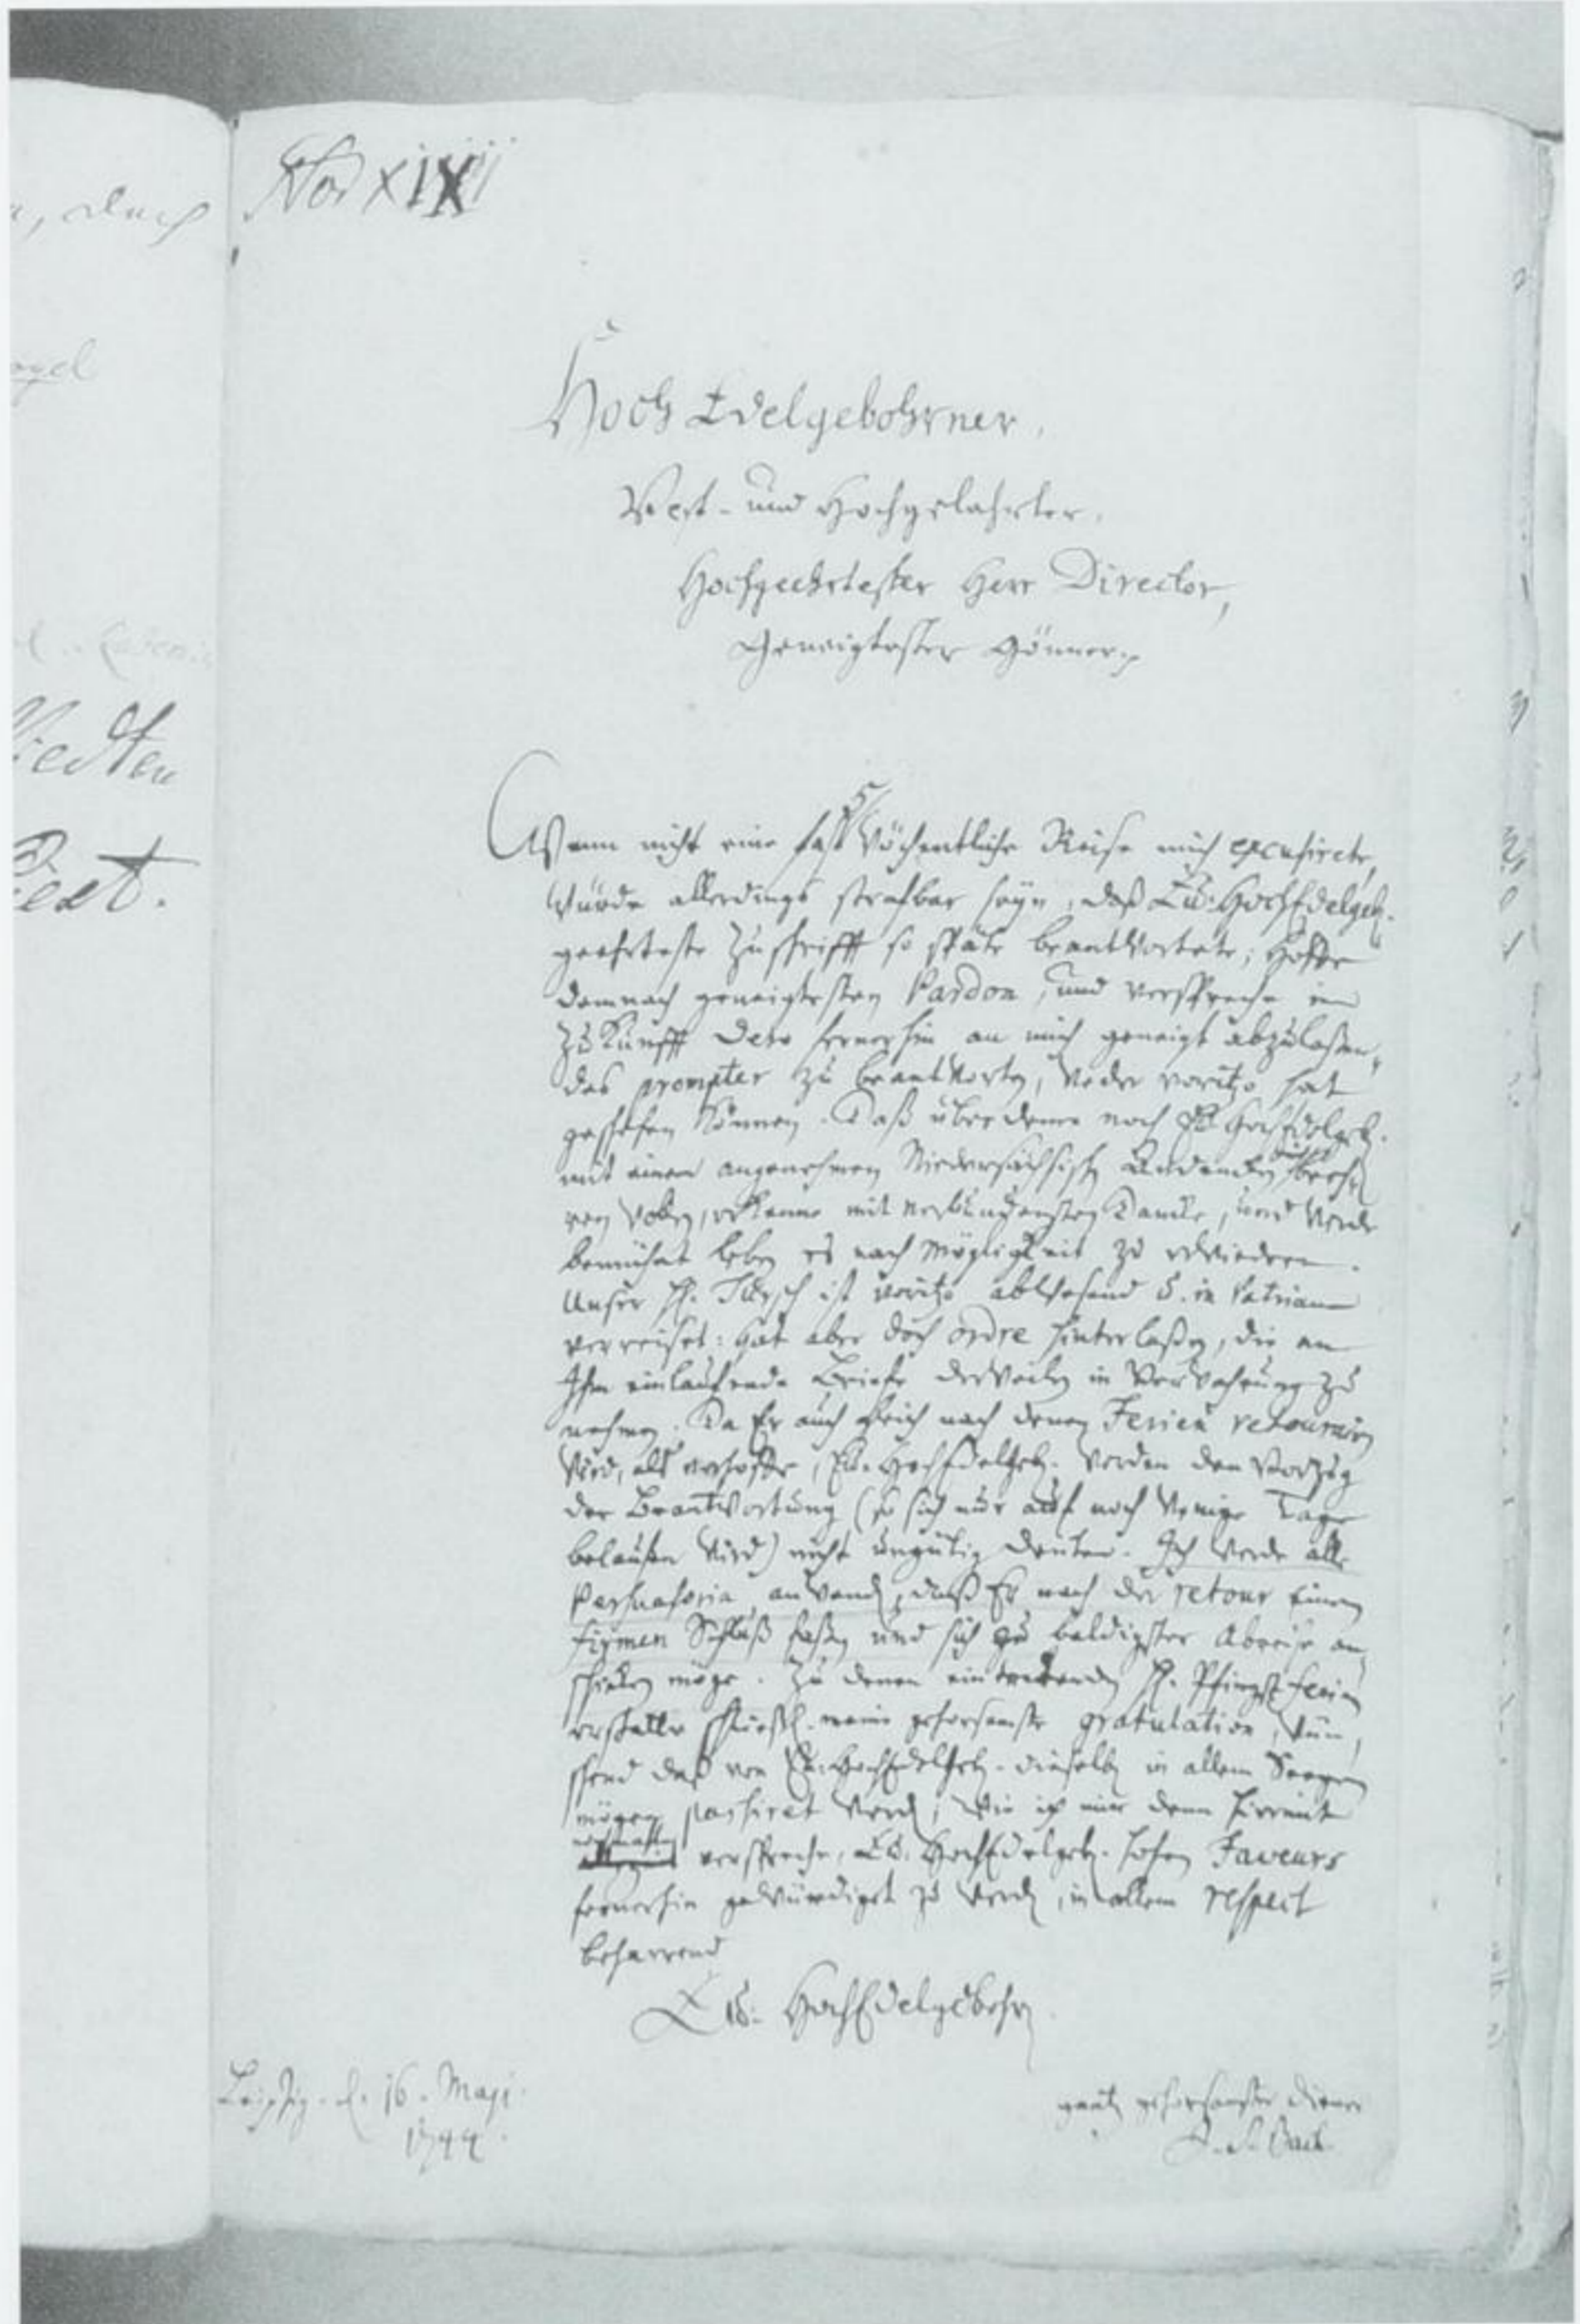 , durch
No: XIX
ogel
Hoch Edelgebohrner,
Vest- und Hochgelahrter,
Hochgeehrtester Herr Director,
Geneigtester Gönner.
5
Wenn nicht eine fast Wöchentliche Reise mich excusirete,
würde allerdings strafbar seyn, daß Ew: HochEdelgeb.
geehrteste Zuschrifft so späte beantwortete; hoffe
demnach geneigtesten Pardon, und verspreche in
Zukunfft Dero fernerhin an mich geneigt abzulaßen-
des prompter zu beantworten, weder voritzo hat
geschehen können. Daß über deme noch Ew: HochEdelgeb.
mit einem angenehmen Niedersächsischen Andencken mich beeh-
ren wollen, erkenne mit verbundensten Dancke, und werde
bemühet leben es nach Mögligkeit zu erwiedern.
Unser H. ist voritzo abwesend u. in Patriam
verreiset: hat aber doch ordre hinterlaßen, die an
Ihn einlauffende Briefe derweilen in Verwahrung zu
nehmen. Da Er auch gleich nach denen Ferien retourniren
wird, als verhoffe, Ew: HochEdelgeb. werden den Verzug
der Beantwortung (so sich nur auf noch wenige Tage
belauffen wird) nicht ungütig deuten. Ich werde alle
Persuasoria anwenden, daß Er nach der retour einen
firmen Schluß faßen und sich zu baldigster Abreise an-
schicken möge. Zu denen eintretenden H. Pfingst Ferien
erstatte schließl. meine gehorsamste gratulation, wün-
schend daß von Ew: HochEdelgeb. dieselben in allem Seegen
mögen passiret werden; wie ich mir denn hiermit
nochmahln verspreche, Ew: HochEdelgeb. hohen Faveurs
fernerhin gewürdiget zu werden, in allem respect
beharrend
Ew: HochEdelgebohrn
Leipzig. d. 16. Maji
1744.
gantz gehorsamster Diener
J. S. Bach.